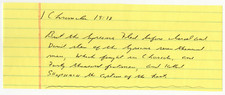 1 Chronicles 19:18
But the Syrians fled before Israel and
David slew of the Syrians seven thousand
men, Which fought in Chariots, and
Forty thousand footmen, and killed
Shophach the Captain of the host.